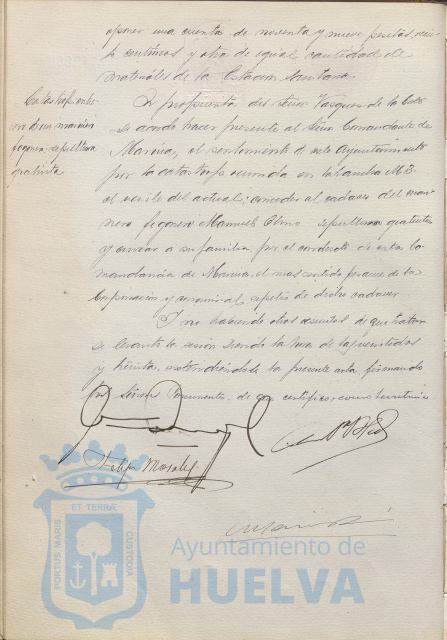 oponer una cuenta de noventa y nueve pesetas,
centimos y otra de igual cantidad de
materiales de la Estacion Sanitaria
A propuesta del Señor Vasquez de la Corte
se acordó hacer presente al Señor Comandante de
Marina, el sentimiento de este Ayuntamiento
por la catastrofe ocurrida en la lancha M.B.
el veinte del actual; conceder al cadaver del mari
nero fogonero Manuel Olmo sepultura gratuita
y enviar a su familia por el conducto de esta Co
mandancia de Marina, el mas sentido pesame de la
Corporación y nominal sepelio de dicho cadaver.
Y no habiendo otros asuntos de que tratar
se levantó la sesion siendo la hora de las veintidos
y treinta, extendiéndose la presente acta firmando
los Señores Concurrentes de que certifico como Secretario
Catástrofe
marinero
fogonero, sepultura
gratuita
Felipe Morales
PORTUS MARIS ET TERRÆ CUSTODIA
Ayuntamiento de
HUELVA